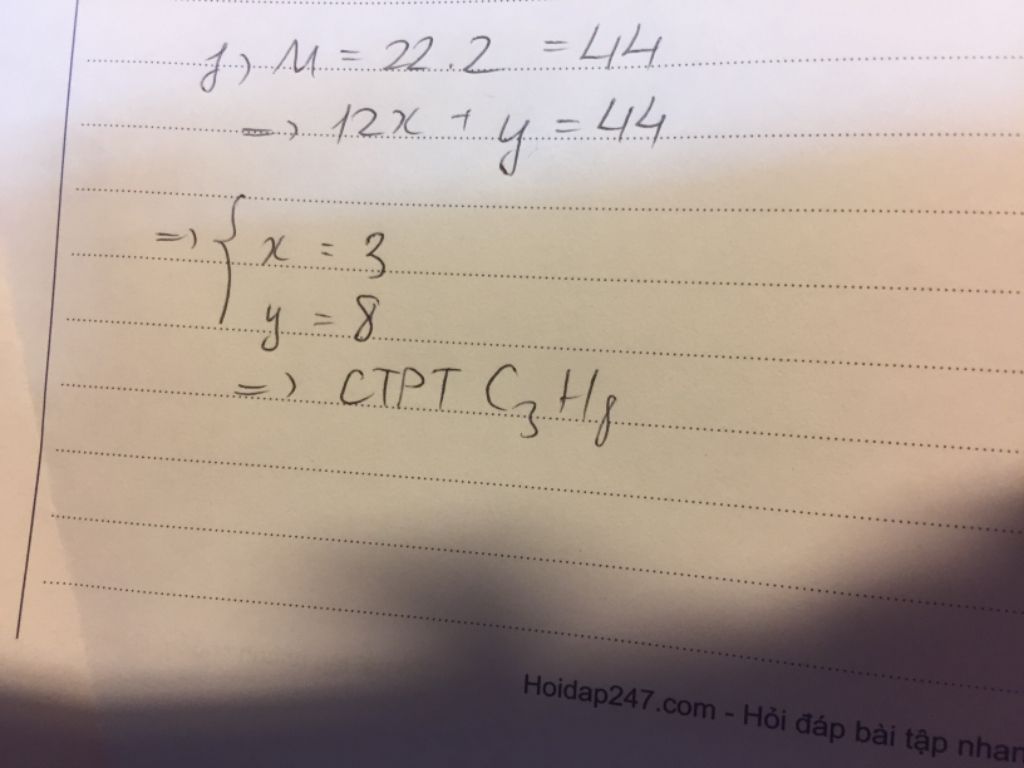 f) M = 22.2 = 44
=> 12x + y = 44
=> { x = 3
y = 8
=> CTPT C₃H₈
Hoidap247.com - Hỏi đáp bài tập